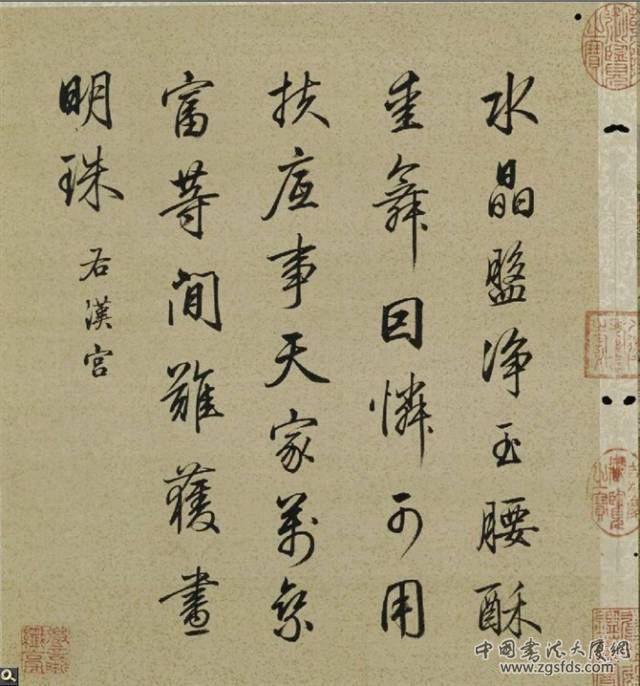 水晶盤净玉腰酥
垂舞因憐可用
扶底事天家萬乘
富等閒難獲畫
明珠
右漢宫
中國書法大厦網
www.zgsfds.com